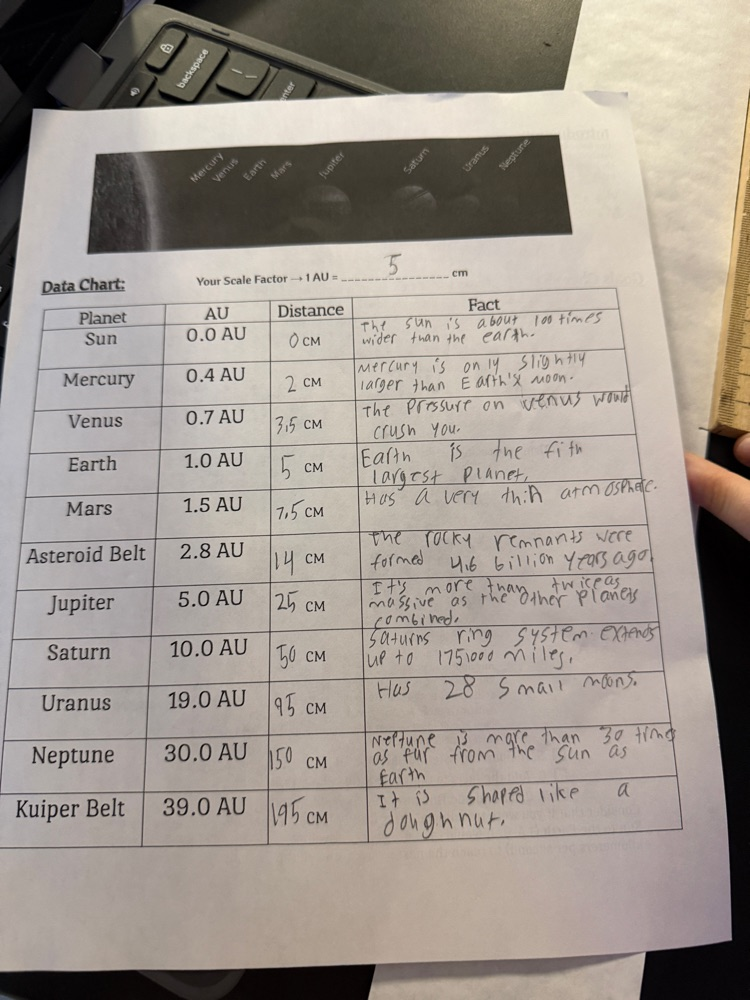 backspace
enter
Mercury Venus Earth Mars Jupiter Saturn Uranus Neptune
Your Scale Factor → 1 AU = 5 cm
Data Chart:
Planet AU Distance Fact
Sun 0.0 AU 0 CM The sun is about 100 times
wider than the earth.
Mercury 0.4 AU 2 CM Mercury is only slightly
larger than Earth's moon.
Venus 0.7 AU 3.5 CM The Pressure on venus would
crush you.
Earth 1.0 AU 5 CM Earth is the fith
largest Planet.
Mars 1.5 AU 7.5 CM Has a very thin atmosphere.
Asteroid Belt 2.8 AU 14 CM The rocky remnants were
formed 4.6 billion years ago.
Jupiter 5.0 AU 25 CM It's more than twice as
massive as the other Planets
combined.
Saturn 10.0 AU 50 CM Saturns ring system extends
up to 175,000 miles.
Uranus 19.0 AU 95 CM Has 28 small moons.
Neptune 30.0 AU 150 CM Neptune is more than 30 times
as far from the sun as
Earth
Kuiper Belt 39.0 AU 195 CM It is shaped like a
doughnut.